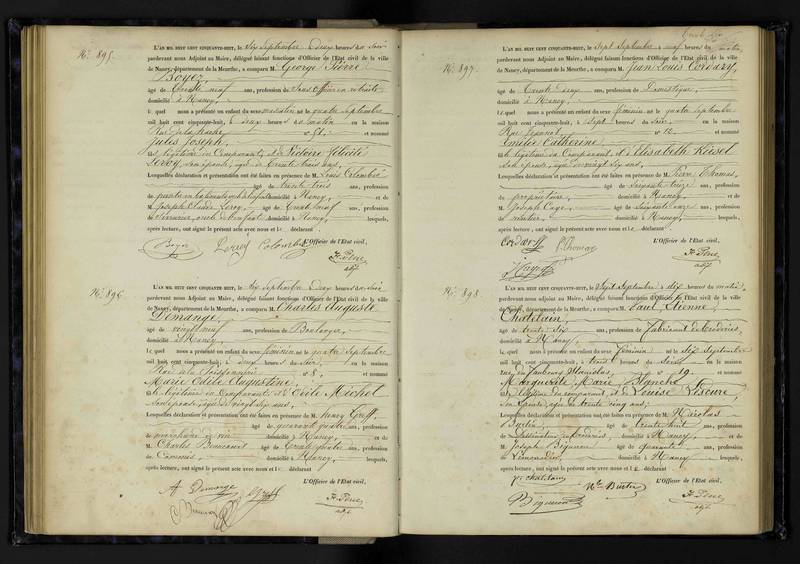 N.° 895.
L'AN MIL HUIT CENT CINQUANTE-HUIT, le Six Septembre à deux heures du Soir
pardevant nous Adjoint au Maire, délégué faisant fonctions d'Officier de l'Etat civil de la ville
de Nancy, département de la Meurthe, a comparu M. George Pierre
Boyer
âgé de Trente neuf ans, profession de Sous Officier en retraite
domicilié à Nancy,
lequel nous a présenté un enfant du sexe masculin né le quatre Septembre
mil huit cent cinquante-huit, à deux heures du matin en la maison
Rue de la hache n° 51. et nommé
Jules Joseph,
fils légitime du Comparant, et de Victoire Félicité
Leroy, son épouse, âgée de Trente trois ans,
Lesquelles déclaration et présentation ont été faites en présence de M. Louis Colombé
âgé de trente trois ans, profession
domicilié à Nancy, et de
M. Joseph Claude Leroy âgé de Trente neuf ans, profession
de Serrurier, domicilié à Nancy, lesquels,
après lecture, ont signé le présent acte avec nous et le déclarant
L'Officier de l'Etat civil,
Boyer Leroy Colombé
adjt
N.° 896.
L'AN MIL HUIT CENT CINQUANTE-HUIT, le Six Septembre à deux heures du Soir
pardevant nous Adjoint au Maire, délégué faisant fonctions d'Officier de l'Etat civil de la ville
de Nancy, département de la Meurthe, a comparu M. Charles Auguste
Demange,
âgé de vingt neuf ans, profession de Boulanger,
domicilié à Nancy,
lequel nous a présenté un enfant du sexe féminin né le quatre Septembre
mil huit cent cinquante-huit, à deux heures du Soir, en la maison
Rue de la Poissonnerie n° 8, et nommé
Marie Odile Augustine,
fille légitime du Comparant, et d'Odile Michel
son épouse, âgée de vingt six ans,
Lesquelles déclaration et présentation ont été faites en présence de M. Henry Greff,
âgé de quarante quatre ans, profession
de marchand de vin domicilié à Nancy, et de
M. Charles âgé de Trente quatre ans, profession
de Commis, domicilié à Nancy, lesquels,
après lecture, ont signé le présent acte avec nous et le déclarant
L'Officier de l'Etat civil,
A Demange Greff
adjt
N.° 897.
L'AN MIL HUIT CENT CINQUANTE-HUIT, le Sept Septembre à neuf heures du matin,
pardevant nous Adjoint au Maire, délégué faisant fonctions d'Officier de l'Etat civil de la ville
de Nancy, département de la Meurthe, a comparu M. Jean Louis Cordary,
âgé de Trente deux ans, profession de Domestique,
domicilié à Nancy,
lequel nous a présenté un enfant du sexe féminin né le quatre Septembre
mil huit cent cinquante-huit, à Sept heures du Soir, en la maison
Rue n° 12 et nommé
Emilie Catherine
fille légitime du Comparant, et d'Elisabeth
son épouse, âgée de vingt six ans,
Lesquelles déclaration et présentation ont été faites en présence de M. Pierre Thomas,
âgé de Soixante treize ans, profession
de propriétaire, domicilié à Nancy, et de
M. Joseph Caye âgé de Soixante onze ans, profession
de rentier, domicilié à Nancy, lesquels,
après lecture, ont signé le présent acte avec nous et le déclarant
L'Officier de l'Etat civil,
P. Thomas
adjt
N.° 898.
L'AN MIL HUIT CENT CINQUANTE-HUIT, le Sept Septembre à dix heures du matin,
pardevant nous Adjoint au Maire, délégué faisant fonctions d'Officier de l'Etat civil de la ville
de Nancy, département de la Meurthe, a comparu M. Paul Etienne
Chatelain,
âgé de trente six ans, profession de Fabricant de broderies,
domicilié à Nancy,
lequel nous a présenté un enfant du sexe féminin né le Six Septembre
mil huit cent cinquante-huit, à trois heures du Soir en la maison
Sise faubourg Stanislas, n° 19. et nommé
Marguerite Marie Blanche
fille légitime du comparant, et de Louise Lescure,
son épouse, âgée de trente cinq ans,
Lesquelles déclaration et présentation ont été faites en présence de M. Nicolas
Burtin, âgé de trente huit ans, profession
de Dessinateur en broderies, domicilié à Nancy et de
M. Joseph Bigueron âgé de quarante ans, profession
de Limonadier, domicilié à Nancy lesquels,
après lecture, ont signé le présent acte avec nous et le déclarant
L'Officier de l'Etat civil,
Chatelain Nas Burtin
Bigueron
adjt